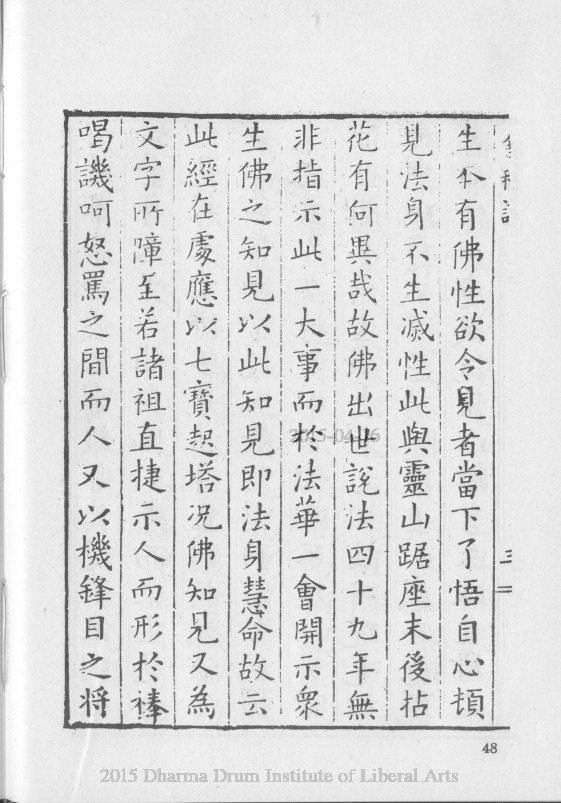 生本有佛性欲令見者當下了悟自心頓
見法身不生滅性此與靈山踞座末後拈
花有何異哉故佛出世說法四十九年無
非指示此一大事而於法華一會開示衆
生佛之知見以此知見即法身慧命故云
此經在處應以七寶起塔况佛知見又為
文字所障至若諸祖直捷示人而形於棒
喝譏呵怒罵之間而人又以機鋒目之将
48
2015 Dharma Drum Institute of Liberal Arts